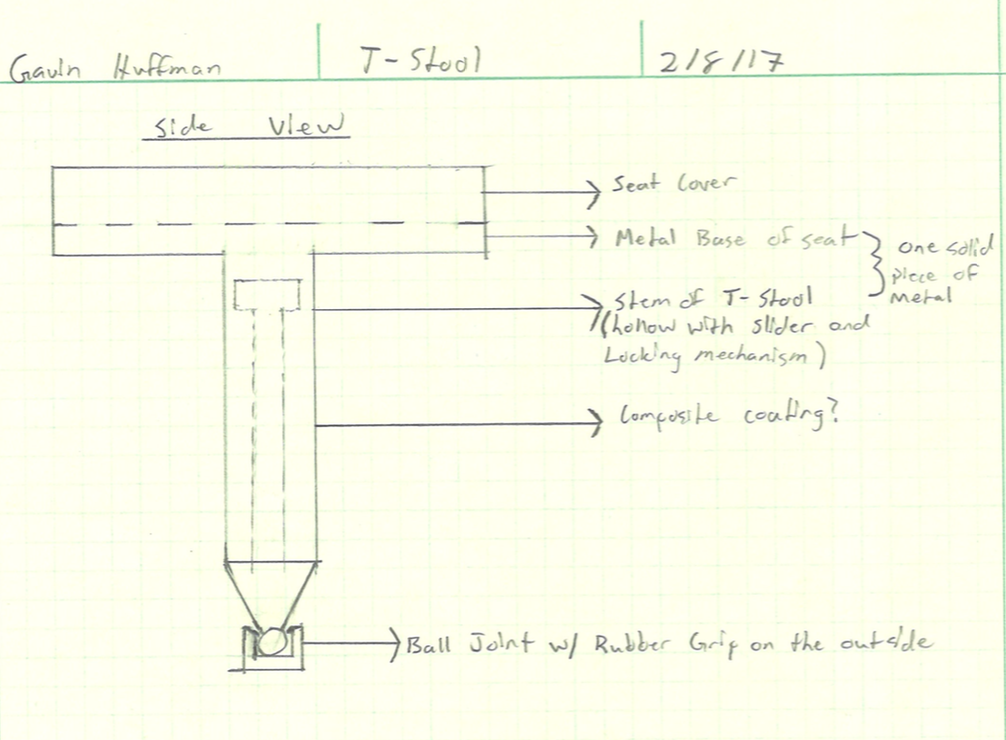 Gavin Huffman T-Stool 2/8/17
Side View
Seat Cover
Metal Base of seat } one solid piece of Metal
Stem of T-Stool
(hollow with slider and
Locking mechanism)
Composite coating?
Ball Joint w/ Rubber Grip on the outside